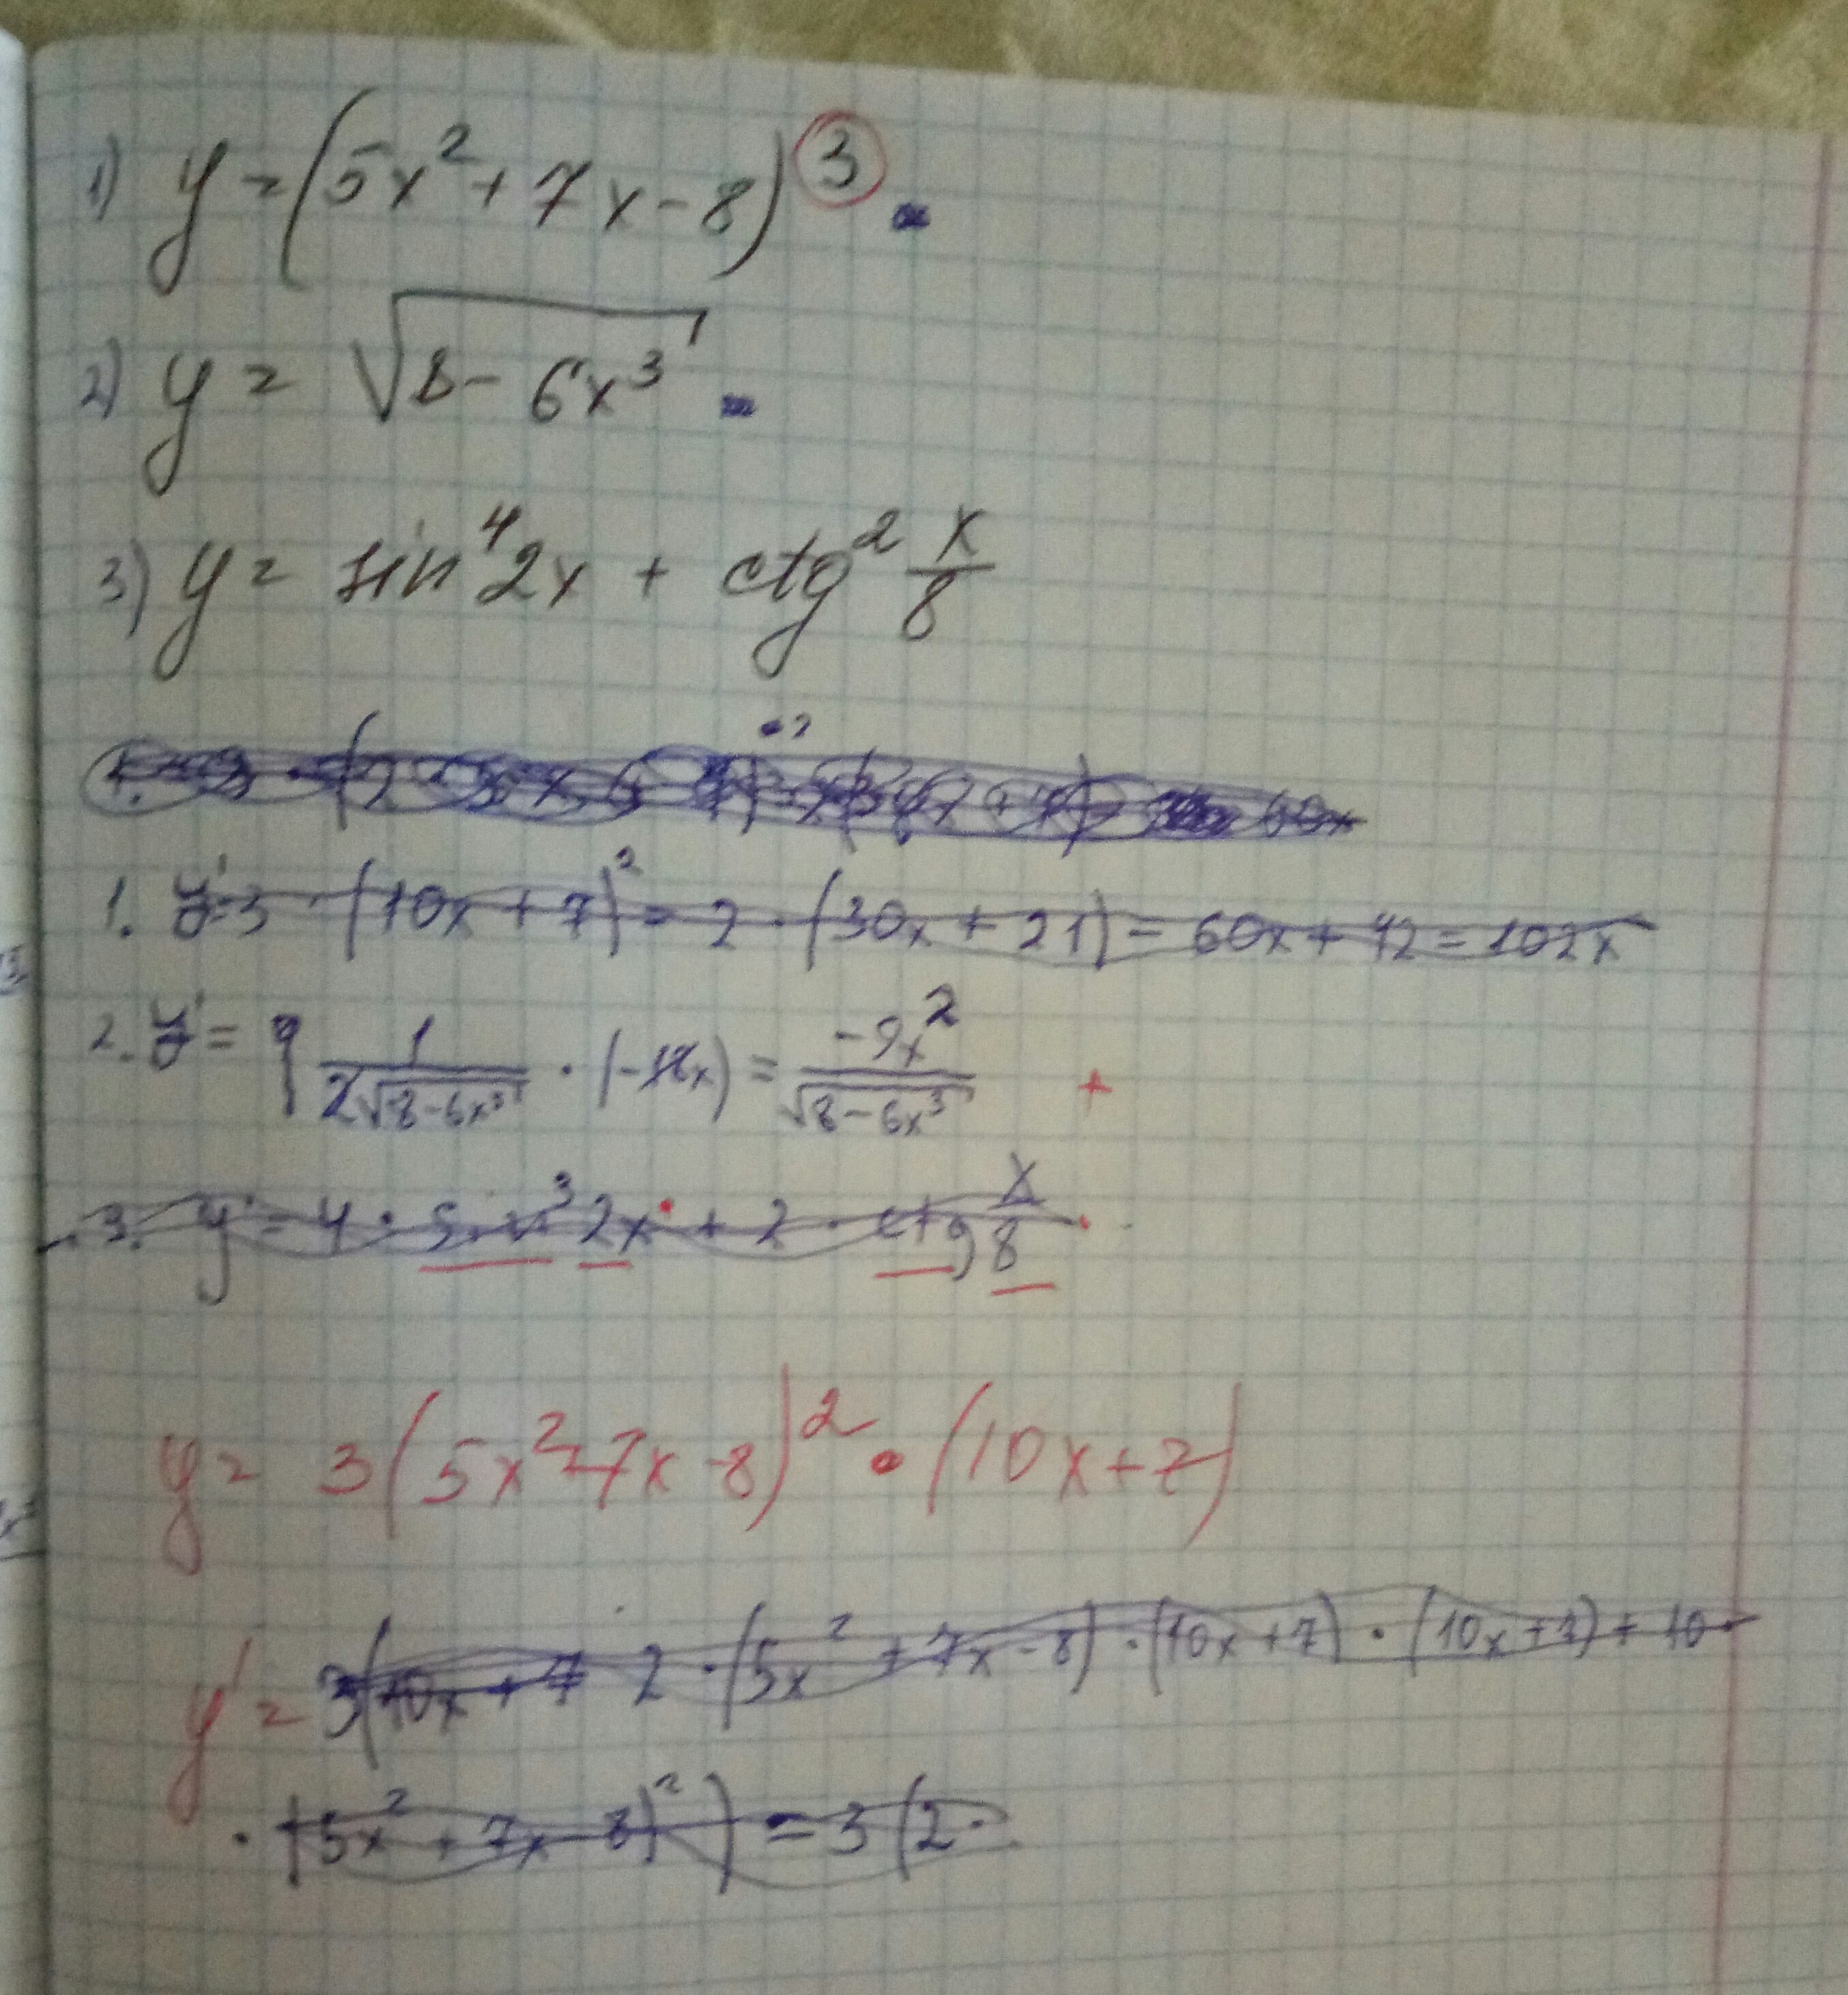 1) y = (5x² + 7x - 8)³
2) y = √(8 - 6x³)
3) y = sin⁴ 2x + ctg² x/8
1. y' = 3 · (10x + 7)² = 2 · (30x + 21) = 60x + 42 = 102x
2. y' = 1/(2√(8 - 6x³)) · (-18x) = -9x²/√(8 - 6x³) +
3. y' = 4 · sin³ 2x · + 2 · ctg x/8 ·
y = 3(5x² + 7x - 8)² · (10x + 7)
y' = 3(10x + 7 2 · (5x² + 7x - 8) · (10x + 7) · (10x + 7) + 10 ·
· (5x² + 7x - 8)²) = 3(2 ·